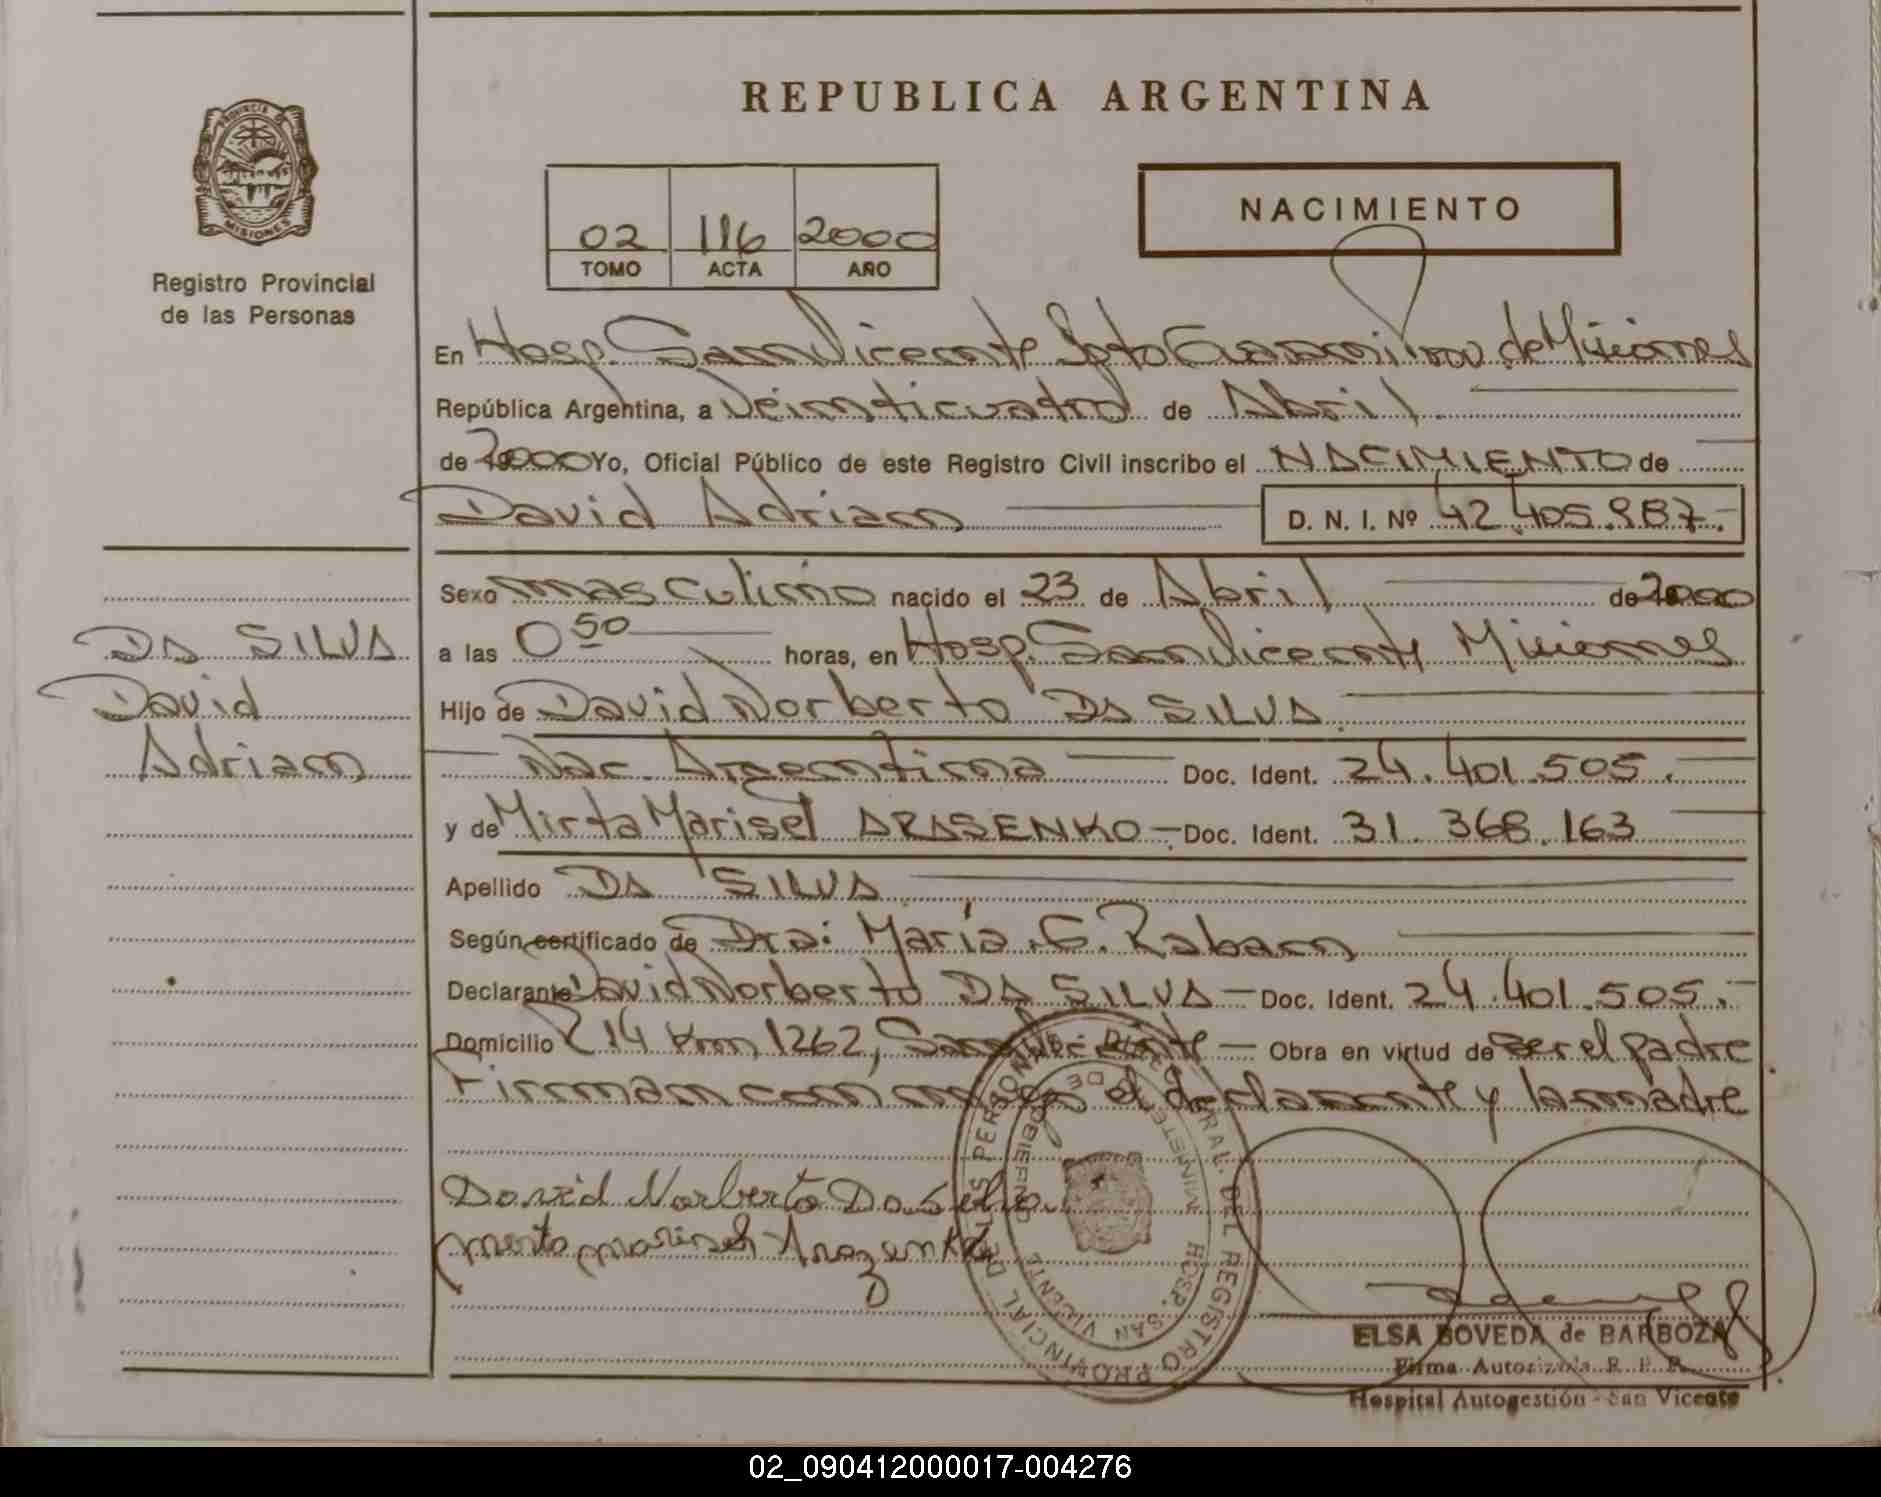 REPUBLICA ARGENTINA
PROVINCIA DE
MISIONES
Registro Provincial
de las Personas
02 116 2000
TOMO ACTA AÑO
NACIMIENTO
En Hosp. San Vicente Dpto Guaraní Prov. de Misiones
República Argentina, a Veinticuatro de Abril
de 2000 Yo, Oficial Público de este Registro Civil inscribo el NACIMIENTO de
David Adrian D. N. I. Nº 42.405.987.
Sexo masculino nacido el 23 de Abril de 2000
a las 0 50 horas, en Hosp. San Vicente Misiones
Hijo de David Norberto DA SILVA
Nac. Argentina Doc. Ident. 24.401.505.
y de Mirta Marisel ARASENKO Doc. Ident. 31.368.163
Apellido DA SILVA
Según certificado de Dra: María G. Raban
Declarante David Norberto DA SILVA Doc. Ident. 24.401.505.
Domicilio R 14 Km 1262, San Vicente Obra en virtud de ser el padre
Firman con migo el declarante y la madre
DA SILVA
David
Adrian
David Norberto Da Silva
mirta marisel Arazenko
PROVINCIAL DE LAS PERSONAS DIR. GRAL. DEL REGISTRO
MINISTERIO DE GOBIERNO
HOSP. SAN VICENTE
ELSA BOVEDA de BARBOZA
Firma Autorizada R. P. P.
Hospital Autogestión - San Vicente
02_090412000017-004276